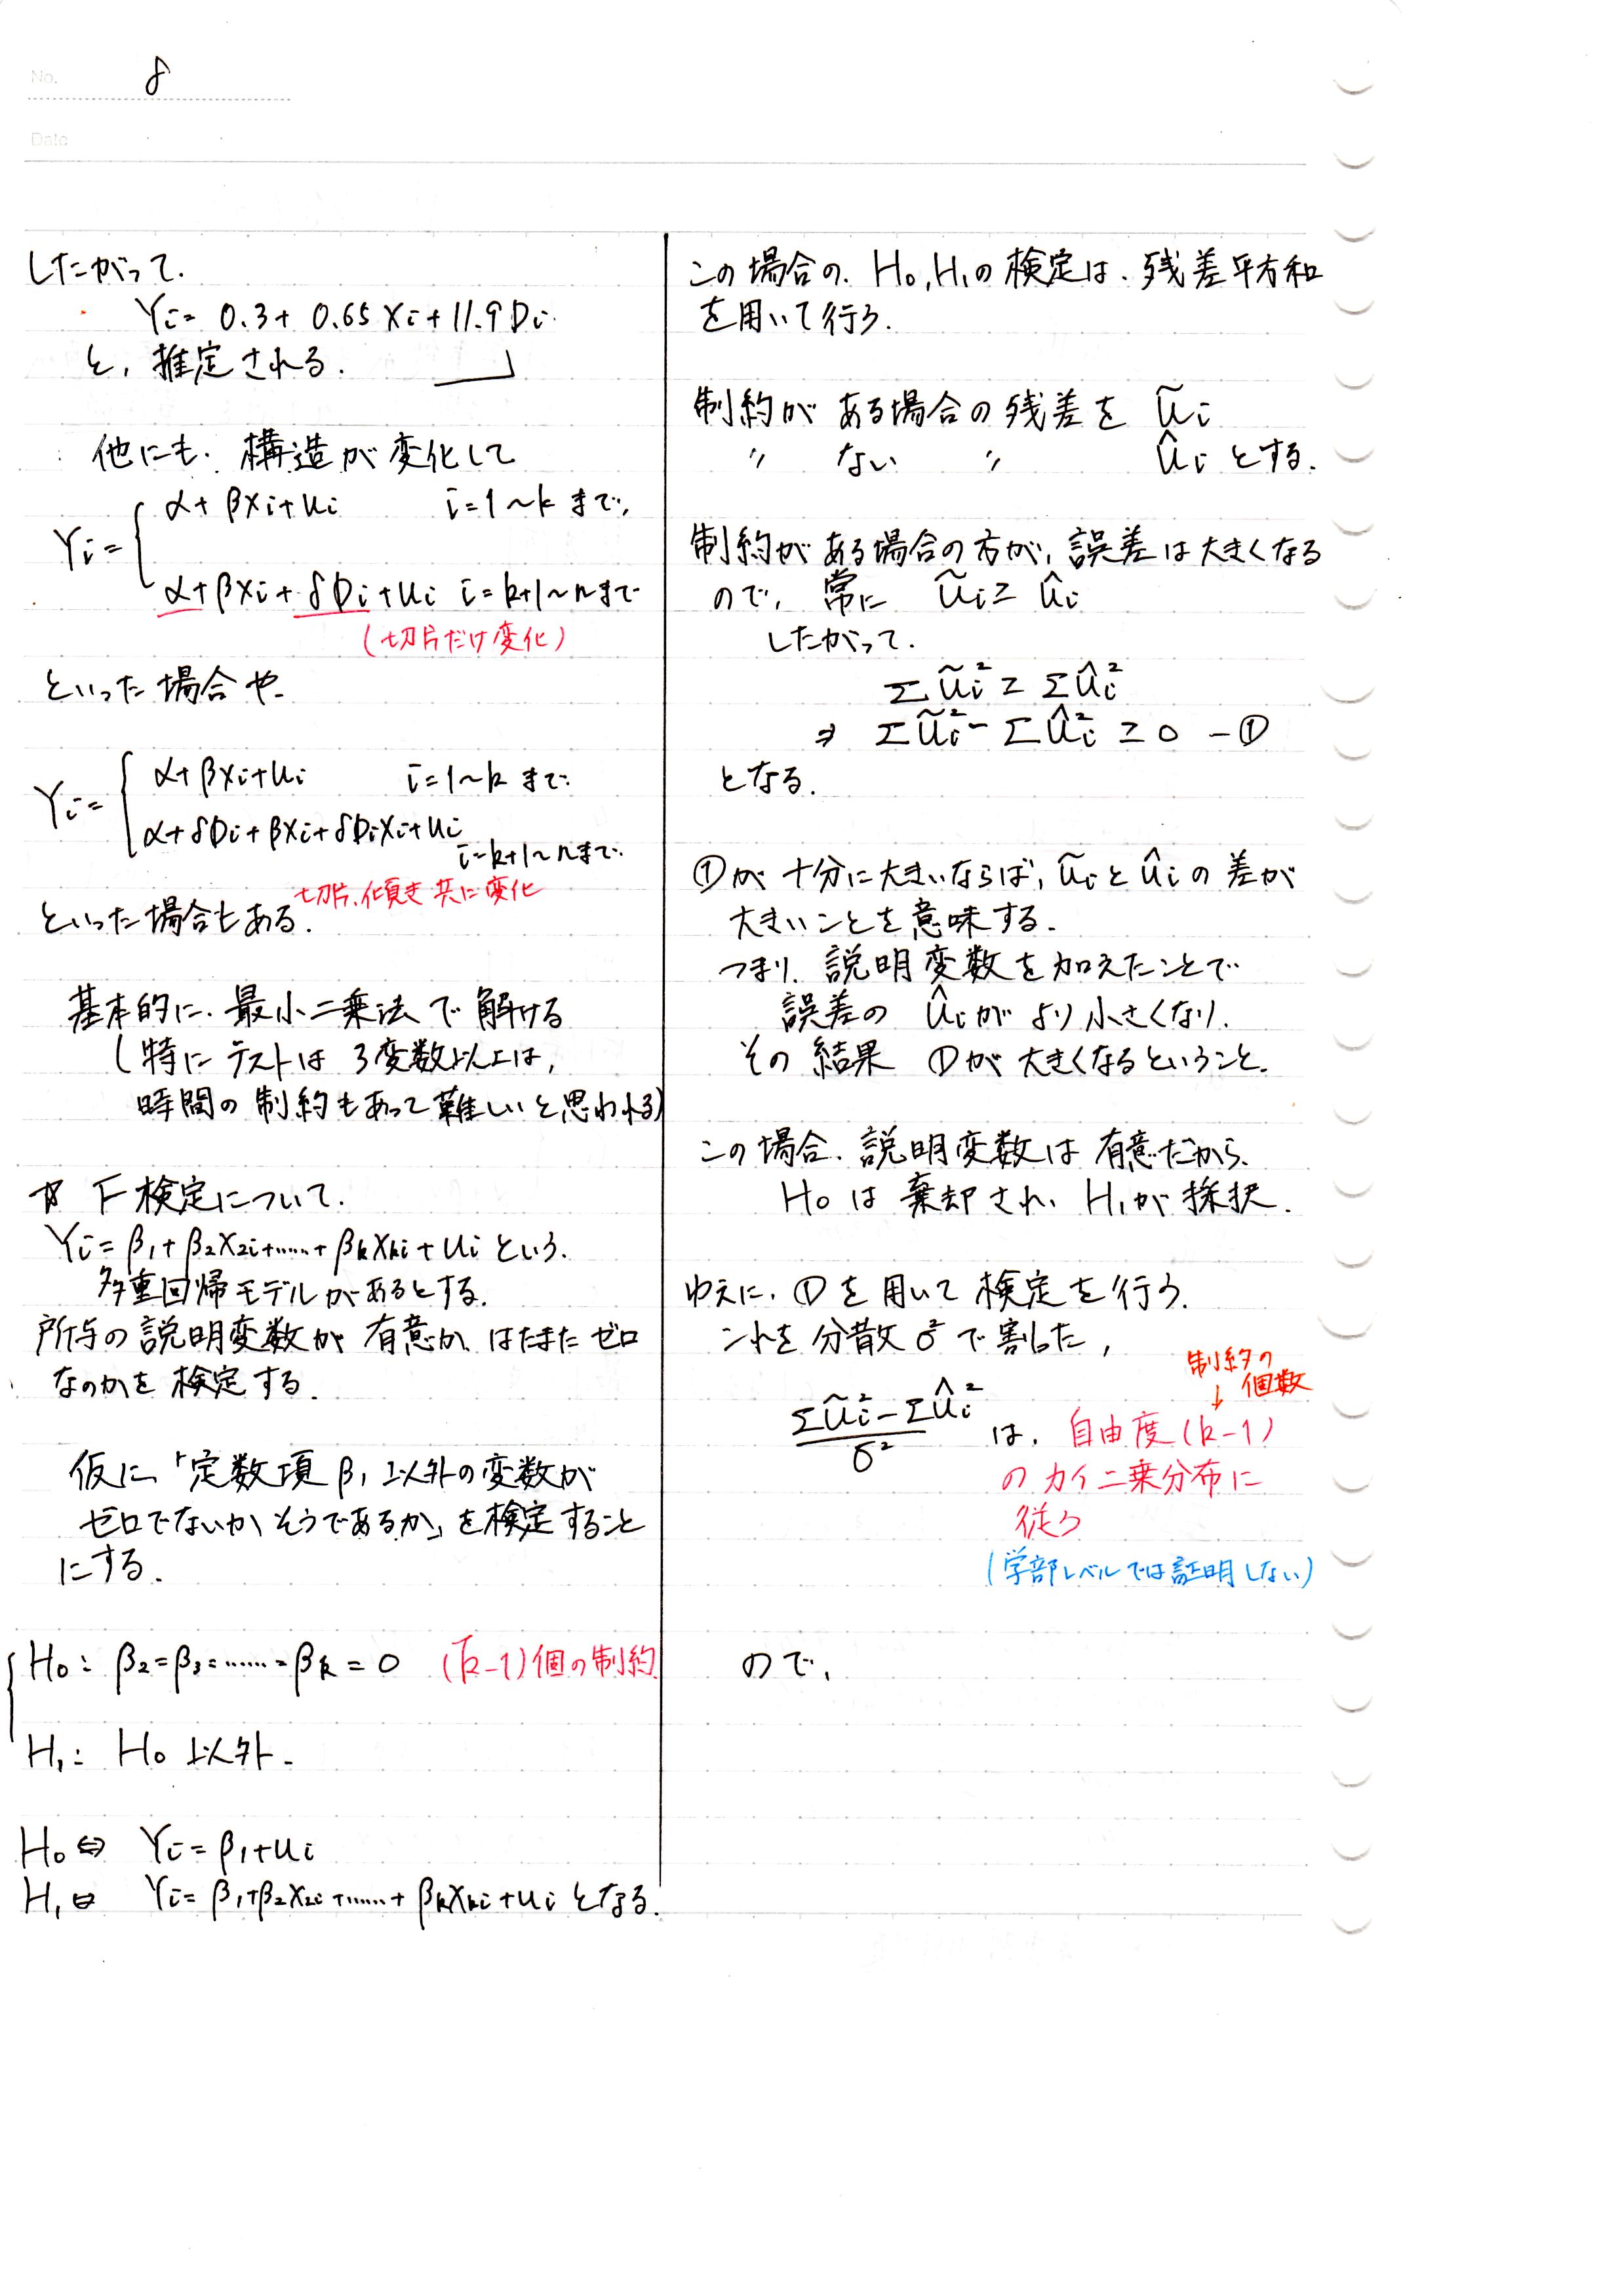 No. 8
Date
したがって.
Yi= 0.3+ 0.65Xi+11.9Di
と, 推定される.
他にも. 構造が変化して
Yi= { α+βXi+ui  i=1~kまで,
α+βXi+δDi+ui  i=k+1~nまで
(切片だけ変化)
といった場合や.
Yi= { α+βXi+ui  i=1~kまで.
α+δDi+βXi+δDiXi+ui
i=k+1~nまで.
切片、傾き共に変化
といった場合もある.
基本的に. 最小二乗法で解ける
(特にテストは 3変数以上は,
時間の制約もあって難しいと思われる)
☆ F検定について.
Yi=β1+β2X2i+……+βkXki+ui という.
多重回帰モデルがあるとする.
所与の説明変数が有意か、はたまたゼロ
なのかを検定する.
仮に、「定数項β1以外の変数が
ゼロでないか、そうであるか」を検定すること
にする.
H0: β2=β3=……=βk=0 (k-1)個の制約
H1: H0以外.
H0⇔ Yi=β1+ui
H1⇔ Yi=β1+β2X2i+……+βkXki+ui となる.
この場合の. H0,H1の検定は. 残差平方和
を用いて行う.
制約がある場合の残差を ũi
〃 ない 〃 ûi とする.
制約がある場合の方が, 誤差は大きくなる
ので, 常に ũi≧ûi
したがって.
Σũi²≧Σûi²
⇒ Σũi²-Σûi²≧0 -①
となる.
①が十分に大きいならば, ũiとûiの差が
大きいことを意味する.
つまり. 説明変数を加えたことで
誤差の ûiがより小さくなり.
その結果 ①が大きくなるということ.
この場合. 説明変数は有意だから、
H0は棄却され、H1が採択.
ゆえに. ①を用いて検定を行う.
これを分散σ²で割った,
制約の
↓ 個数
(Σũi²-Σûi²)/σ² は, 自由度(k-1)
のカイ二乗分布に
従う
(学部レベルでは証明しない)
ので,